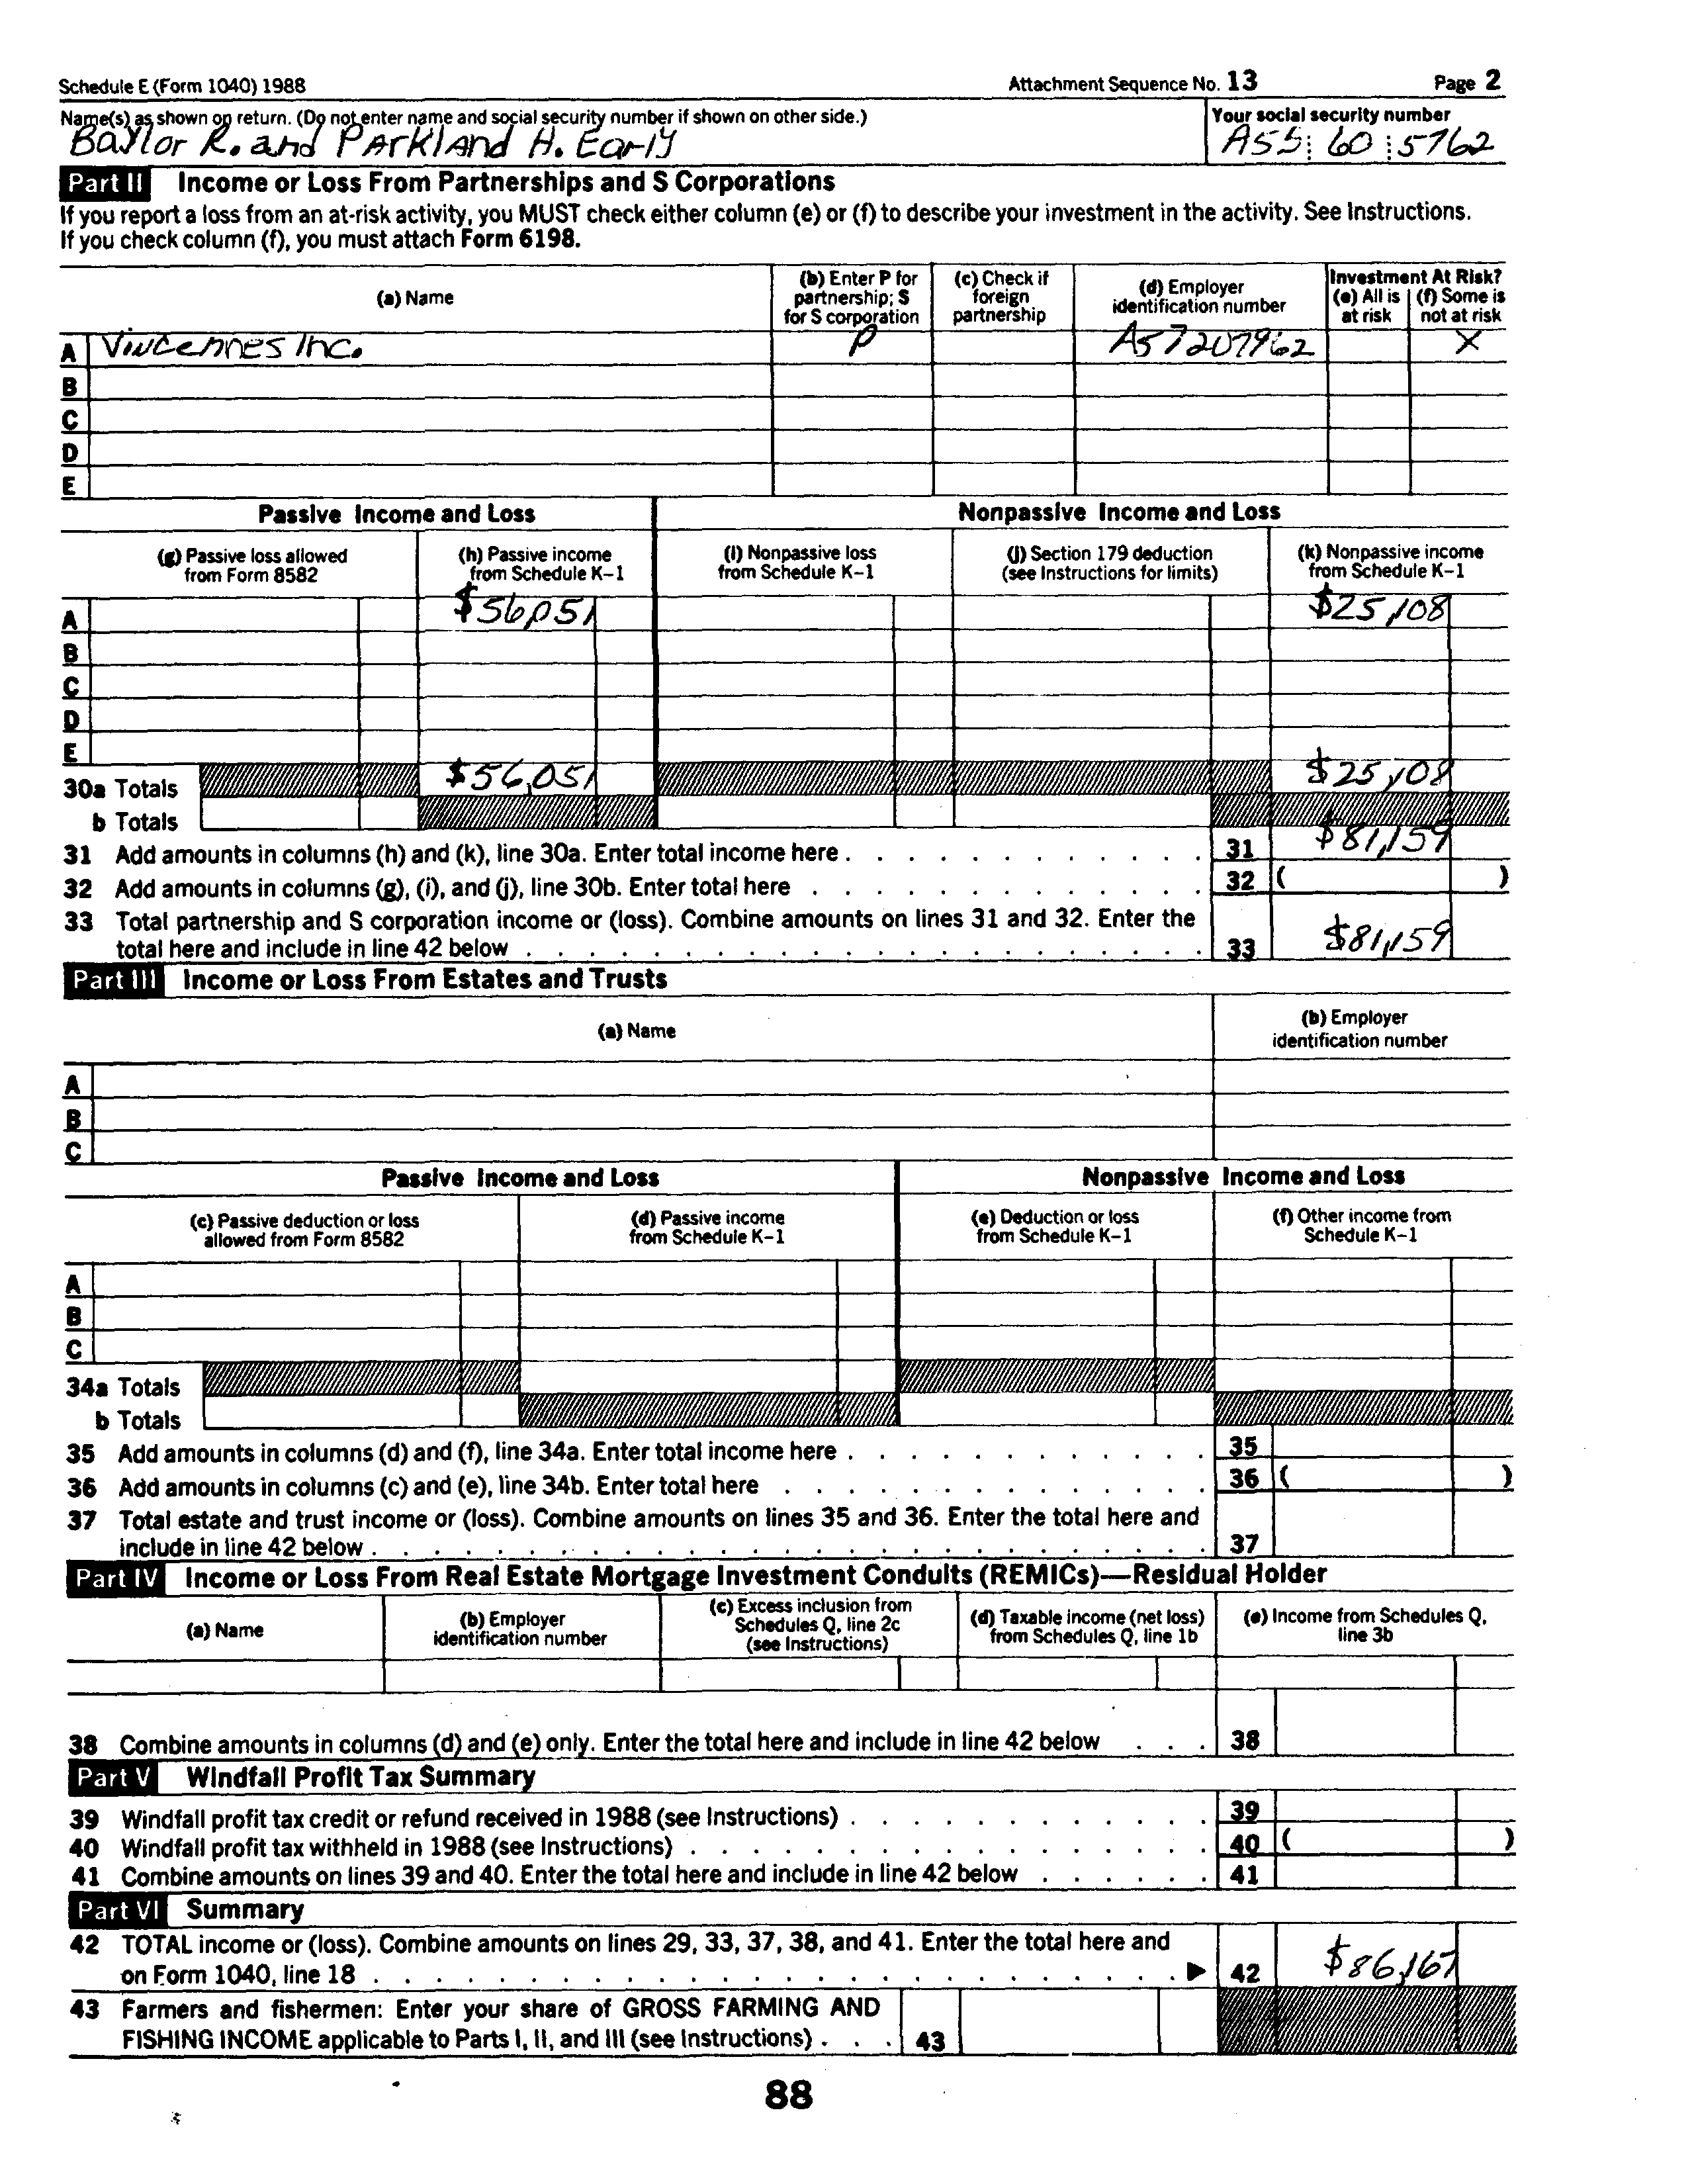 Schedule E (Form 1040) 1988 Attachment Sequence No. 13 Page 2
Name(s) as shown on return. (Do not enter name and social security number if shown on other side.) Your social security number
Baylor R. and Parkland H. Early A55 60 5762
Part II Income or Loss From Partnerships and S Corporations
If you report a loss from an at-risk activity, you MUST check either column (e) or (f) to describe your investment in the activity. See Instructions.
If you check column (f), you must attach Form 6198.
(a) Name (b) Enter P for partnership; S for S corporation (c) Check if foreign partnership (d) Employer identification number Investment At Risk? (e) All is at risk (f) Some is not at risk
A Vincennes Inc. P A57207962 X
B
C
D
E
Passive Income and Loss Nonpassive Income and Loss
(g) Passive loss allowed from Form 8582 (h) Passive income from Schedule K–1 (i) Nonpassive loss from Schedule K–1 (j) Section 179 deduction (see Instructions for limits) (k) Nonpassive income from Schedule K–1
A $56,051 $25,108
B
C
D
E
30a Totals $56,051 $25,108
b Totals
31 Add amounts in columns (h) and (k), line 30a. Enter total income here 31 $81,159
32 Add amounts in columns (g), (i), and (j), line 30b. Enter total here 32 ( )
33 Total partnership and S corporation income or (loss). Combine amounts on lines 31 and 32. Enter the
total here and include in line 42 below 33 $81,159
Part III Income or Loss From Estates and Trusts
(a) Name (b) Employer identification number
A
B
C
Passive Income and Loss Nonpassive Income and Loss
(c) Passive deduction or loss allowed from Form 8582 (d) Passive income from Schedule K–1 (e) Deduction or loss from Schedule K–1 (f) Other income from Schedule K–1
A
B
C
34a Totals
b Totals
35 Add amounts in columns (d) and (f), line 34a. Enter total income here 35
36 Add amounts in columns (c) and (e), line 34b. Enter total here 36 ( )
37 Total estate and trust income or (loss). Combine amounts on lines 35 and 36. Enter the total here and
include in line 42 below 37
Part IV Income or Loss From Real Estate Mortgage Investment Conduits (REMICs)—Residual Holder
(a) Name (b) Employer identification number (c) Excess inclusion from Schedules Q, line 2c (see Instructions) (d) Taxable income (net loss) from Schedules Q, line 1b (e) Income from Schedules Q, line 3b
38 Combine amounts in columns (d) and (e) only. Enter the total here and include in line 42 below 38
Part V Windfall Profit Tax Summary
39 Windfall profit tax credit or refund received in 1988 (see Instructions) 39
40 Windfall profit tax withheld in 1988 (see Instructions) 40 ( )
41 Combine amounts on lines 39 and 40. Enter the total here and include in line 42 below 41
Part VI Summary
42 TOTAL income or (loss). Combine amounts on lines 29, 33, 37, 38, and 41. Enter the total here and
on Form 1040, line 18 ▶ 42 $86,167
43 Farmers and fishermen: Enter your share of GROSS FARMING AND
FISHING INCOME applicable to Parts I, II, and III (see Instructions) 43
88